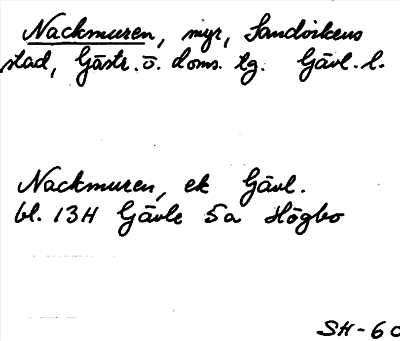 Nackmuren, myr, Sandvikens
stad, Gästr. ö. doms. tg. Gävl. l.
Nackmuren, ek Gävl.
bl. 13H Gävle 5a Högbo
SH-60